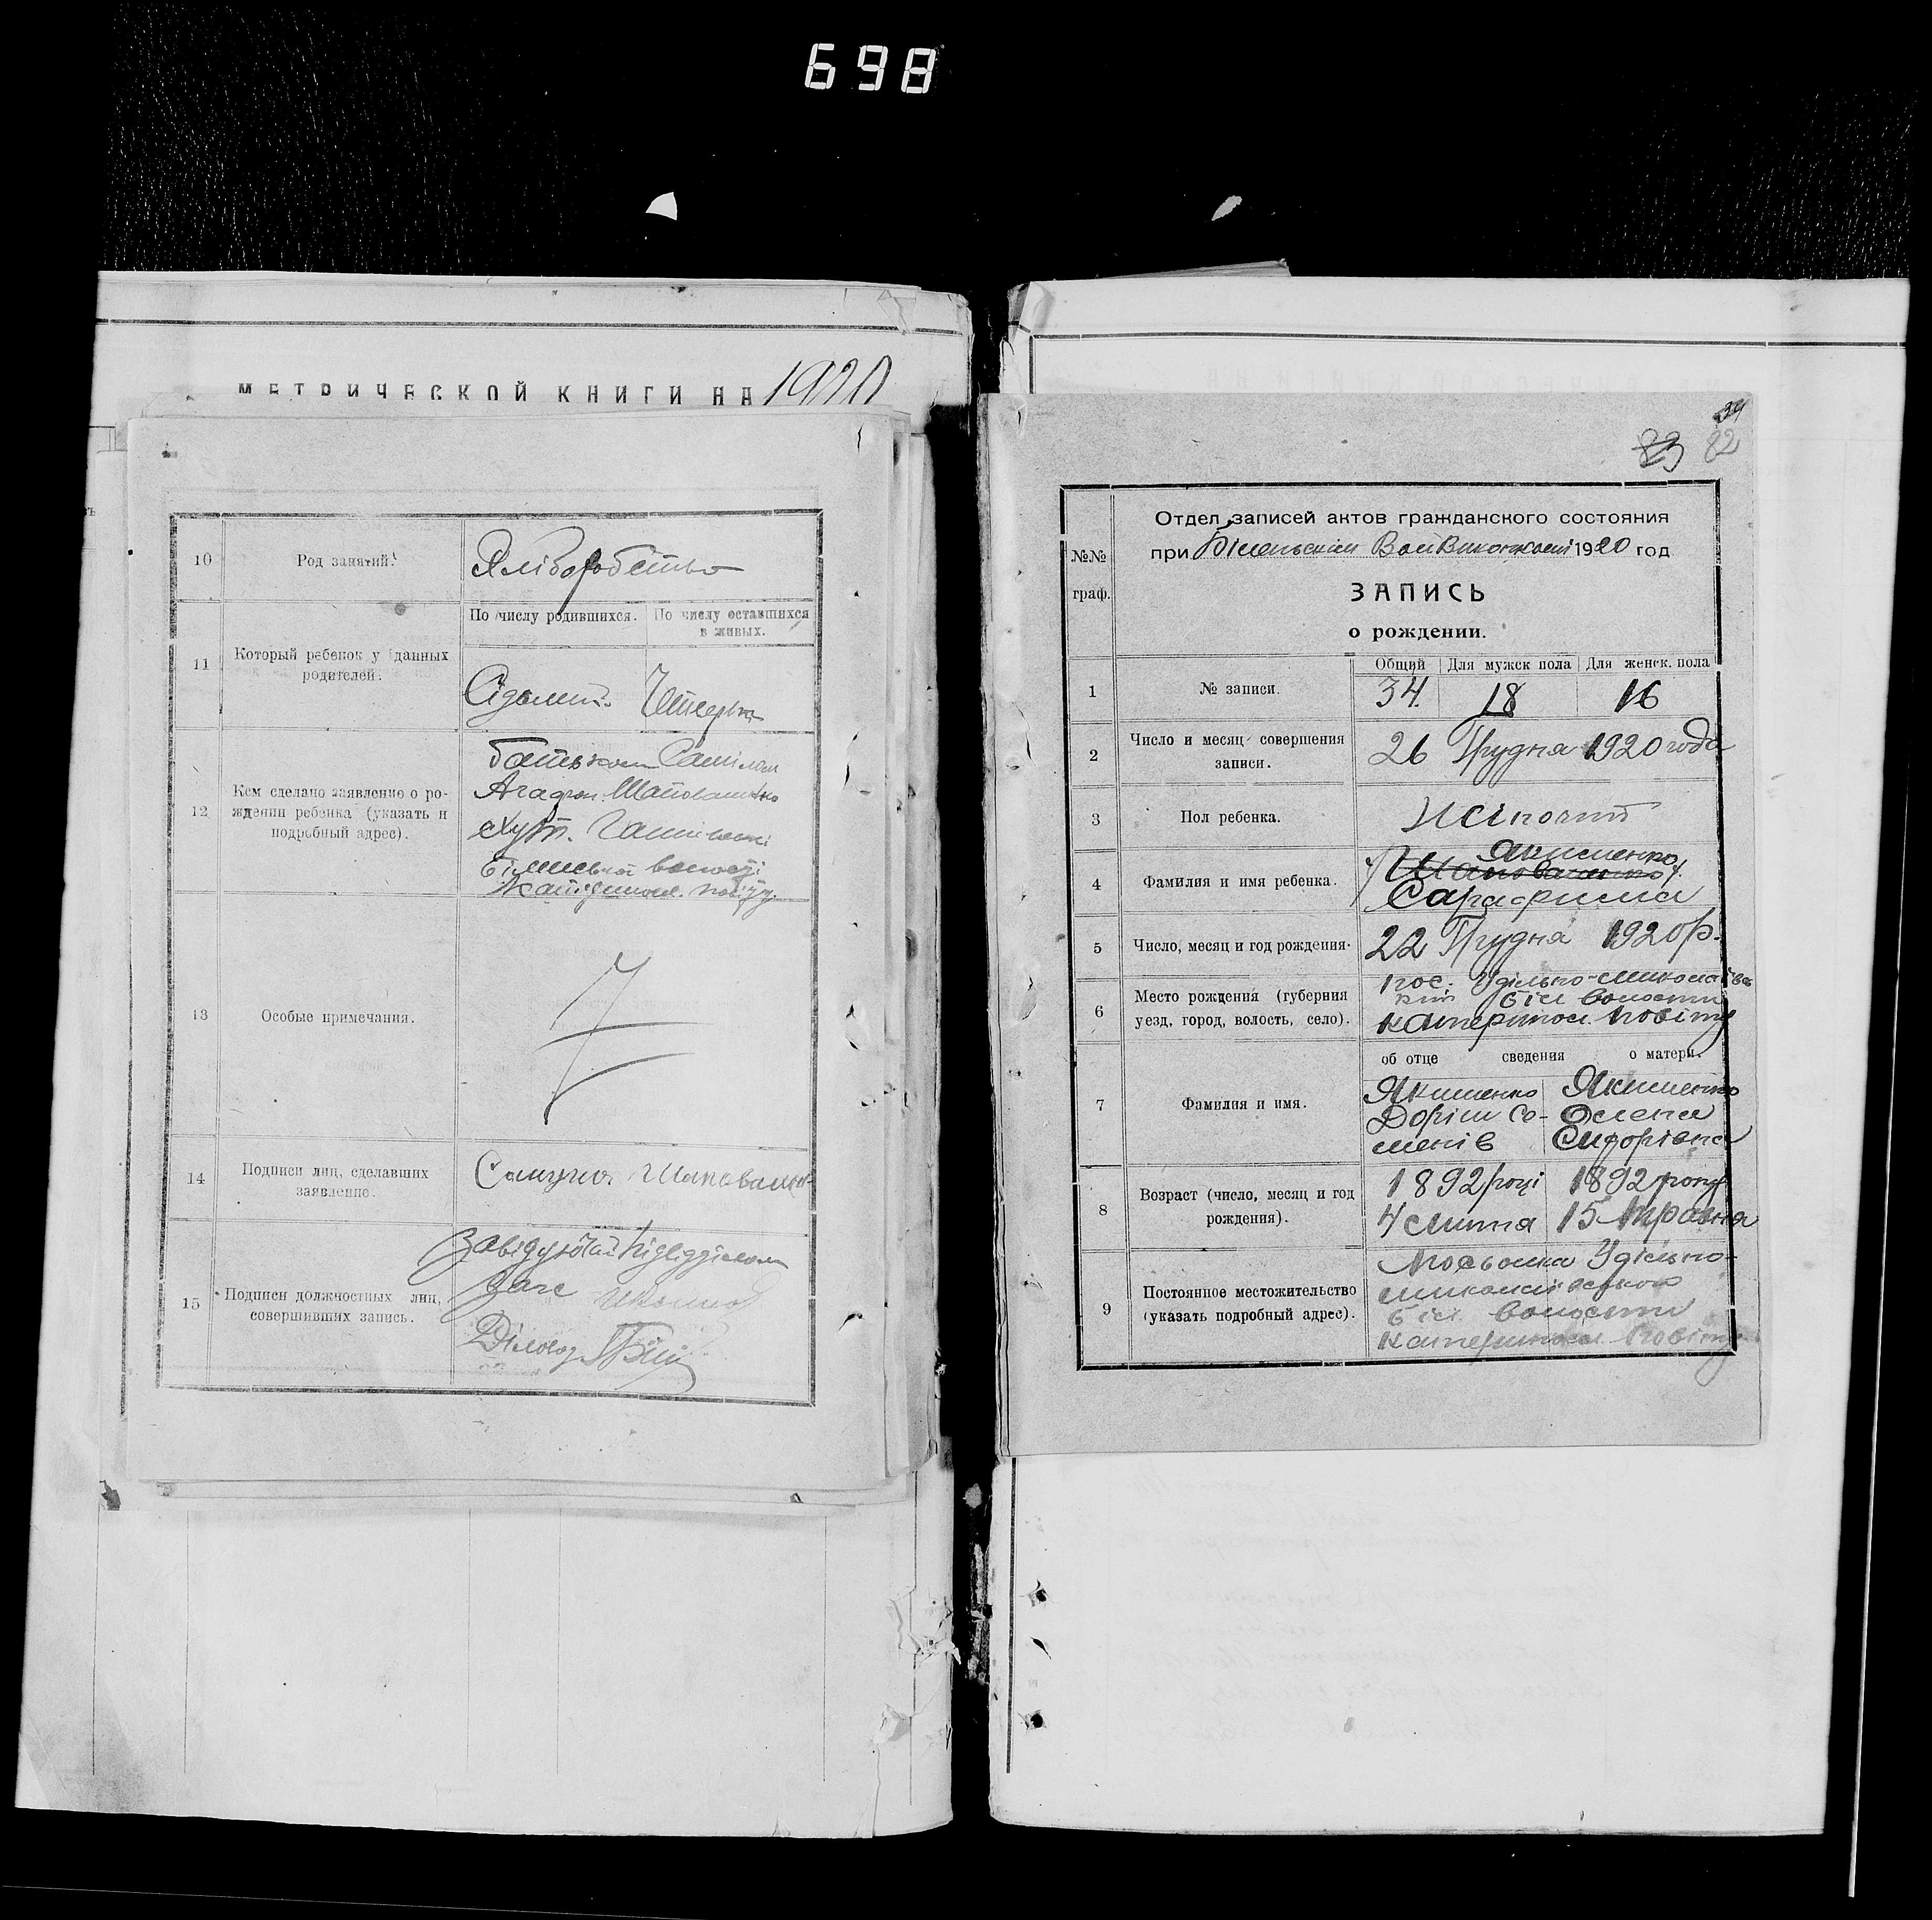 698
МЕТРИЧЕСКОЙ КНИГИ НА 1920
10
Род занятий.
Хліборобство
11
Который ребенок у данных
родителей.
По числу родившихся.
По числу оставшихся
в живых.
Сідьмий
Четверта
12
Кем сделано заявление о ро-
ждении ребенка (указать и
подробный адрес).
батьком
Шаповаленко
Хут.
волості
повіту
13
Особые примечания.
14
Подписи лиц, сделавших
заявление.
Шаповалено
15
Подписи должностных лиц,
совершивших запись.
Завідуючий підвідділом
Загс
Діловод
34
83 82
№№
граф.
Отдел записей актов гражданского состояния
при Волвиконкомі 1920 год
ЗАПИСЬ
о рождении.
1
№ записи.
Общий Для мужск пола Для женск. пола
34. 18 16
2
Число и месяц совершения
записи.
26 Грудня 1920 года
3
Пол ребенка.
Жіночий
4
Фамилия и имя ребенка.
Якименко
Шаповаленко
Сарафима
5
Число, месяц и год рождения.
22 Грудня 1920 р.
6
Место рождения (губерния
уезд, город, волость, село).
пос. Удільно-Миколаївс
кий Біл волости
Катеринос. повіту
об отце сведения о матери.
7
Фамилия и имя.
Якименко
Дорім Се-
менів
Якименко
Олена
Сидорівна
8
Возраст (число, месяц и год
рождения).
1892 році
4 липня
1892 року
15 Травня
9
Постоянное местожительство
(указать подробный адрес).
Посьолка Удільно-
миколаївського
Біл. волости
Катеринос. Повіту